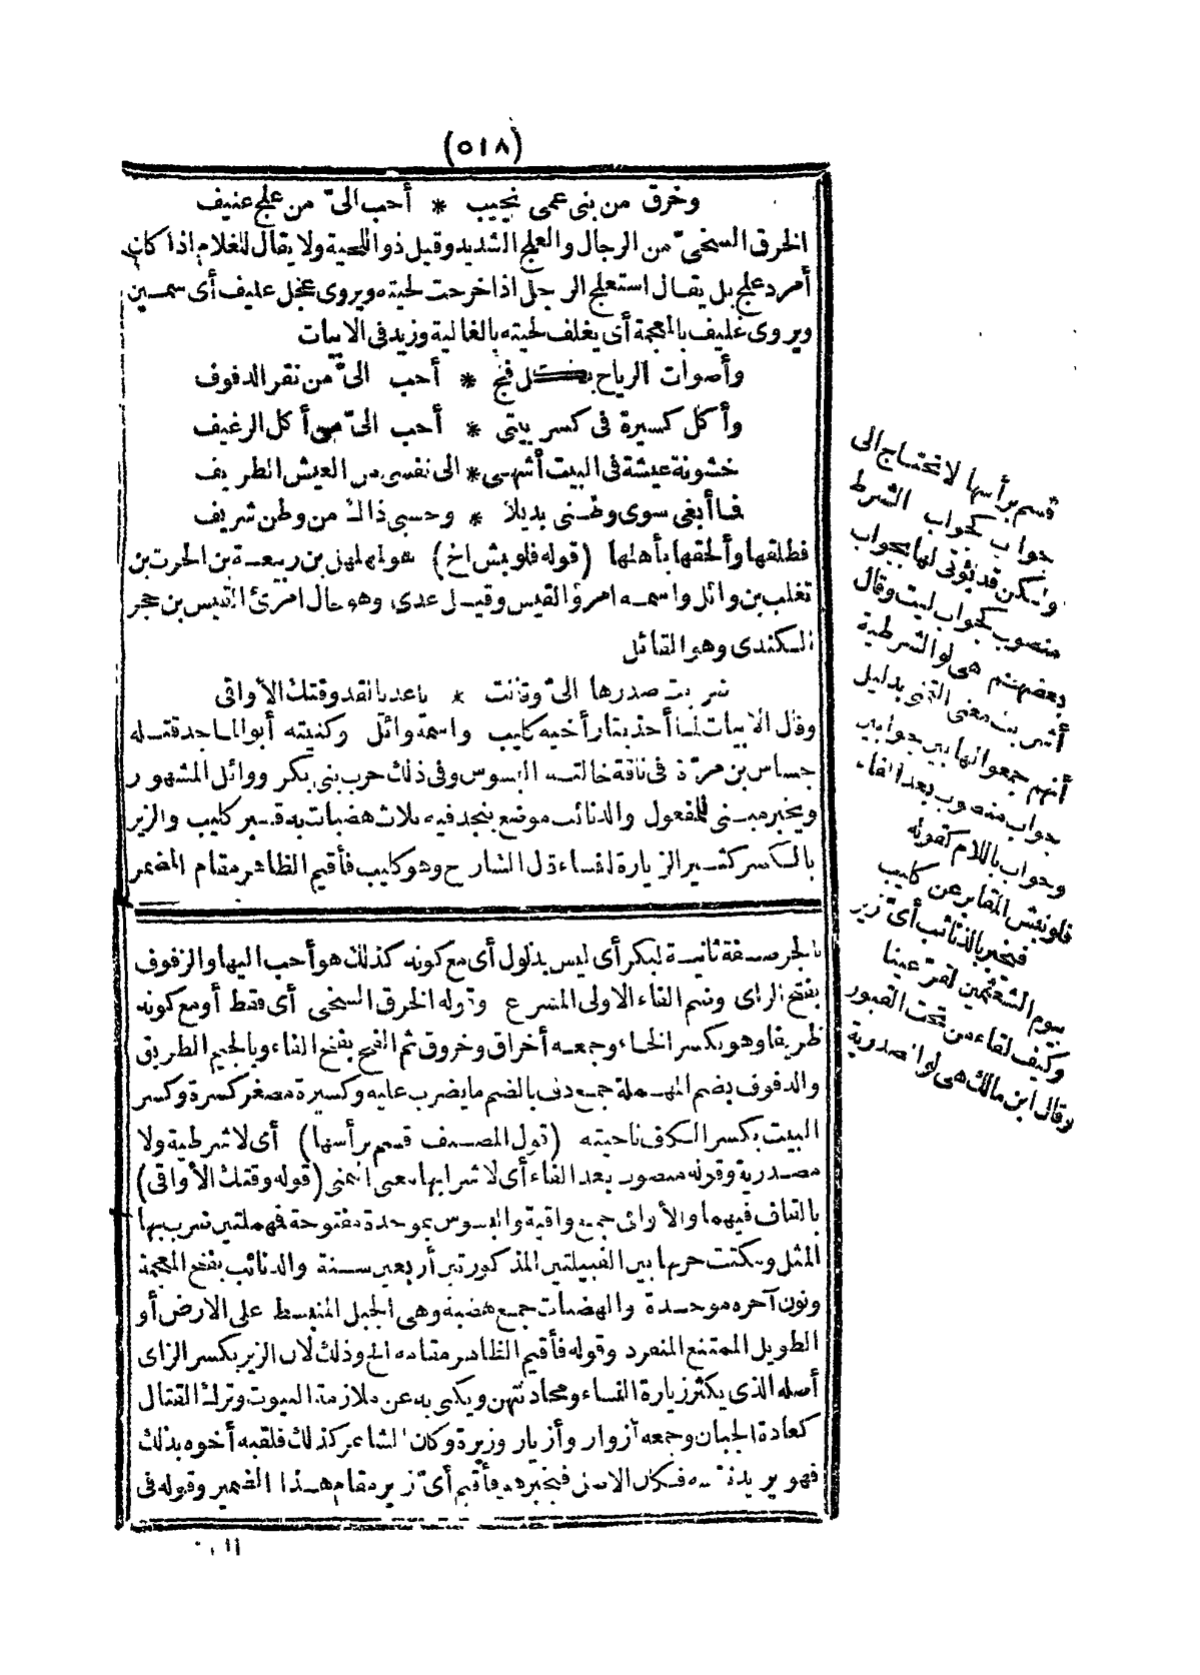 (٥١٨)
وخرق من بنى عمى نجيب * أحب الىّ من علج عنيف
الخرق السخىّ من الرجال والعلج الشديد وقيل ذو اللحية ولا يقال للغلام اذا كان
أمرد علج بل يقال استعلج الرجل اذا خرجت لحيته ويروى عجل عليف أى سمين
ويروى غليف بالمعجمة أى يغلف لحيته بالغالية وزيد فى الابيات
وأصوات الرياح بكل فج * أحب الىّ من نقر الدفوف
وأكل كسيرة فى كسر بيتى * أحب الىّ من أكل الرغيف
خشونة عيشة فى البيت أشهى * الى نفسى من العيش الطريف
فما أبغى سوى وطنى بديلا * وحسبى ذاك من وطن شريف
فطلقها وألحقها بأهلها (قوله فلو نبش الخ) هو لمهلهل بن ربيعة بن الحرث بن
تغلب بن وائل واسمه امرؤ القيس وقيل عدى وهو خال امرئ القيس بن حجر
الكندى وهو القائل
ضربت صدرها الىّ وقالت * ياعديا لقد وقتك الأواقى
وقال الابيات لما أخذ بثار أخيه كليب واسمه وائل وكنيته أبو الماجد قتله
جساس بن مرّة فى ناقة خالته البسوس وفى ذلك حرب بنى بكر ووائل المشهور
ويخبر مبنى للمفعول والذنائب موضع بنجد فيه ثلاث هضبات به قبر كليب والزير
بالكسر كثير الزيارة للنساء قال الشارح وهو كليب فأقيم الظاهر مقام المضمر
بالجر صفة ثانية لبكر أى ليس بذلول أى مع كونه كذلك هو أحب اليها والزفوف
بفتح الزاى وضم الفاء الاولى المسرع وقوله الخرق السخى أى فقط أو مع كونه
ظريفا وهو بكسر الخاء وجمعه أخراق وخروق ثم الفج بفتح الفاء وبالجيم الطريق
والدفوف بضم المهملة جمع دف بالضم ما يضرب عليه وكسيرة مصغر كسرة وكسر
البيت بكسر الكاف ناحيته (قول المصنف قسم برأسها) أى لا شرطية ولا
مصدرية وقوله منصوب بعد الفاء أى لاشرابها معنى التمنى (قوله وقتك الأواقى)
بالقاف فيهما والأواقى جمع واقية والبسوس بموحدة مفتوحة فمهملتين ضرب بها
المثل ومكثت حربها بين القبيلتين المذكورتين أربعين سنة والذنائب بفتح المعجمة
ونون آخره موحدة والهضبات جمع هضبة وهى الجبل المنبسط على الارض أو
الطويل الممتنع المنفرد وقوله فأقيم الظاهر مقامه الخ وذلك لان الزير بكسر الزاى
أصله الذى يكثر زيارة النساء ومحادثتهن ويكنى به عن ملازمة البيوت وترك القتال
كعادة الجبان وجمعه أزوار وأزيار وزيرة وكان الشاعر كذلك فلقبه أخوه بذلك
فهو يريد نفسه فكان الاصل فيخبر هو فأقيم أىّ زير مقام هذا الضمير وقوله فى
قسم برأسها لا تحتاج الى
جواب كجواب الشرط
ولكن قد يؤتى لها بجواب
منصوب كجواب ليت وقال
بعضهم هى لو الشرطية
أشربت معنى التمنى بدليل
أنهم جمعوا لها بين جوابين
جواب منصوب بعد الفاء
وجواب باللام كقوله
فلو نبش المقابر عن كليب
فيخبر بالذنائب أىّ زير
بيوم الشعثمين لقرّ عينا
وكيف لقاء من تحت القبور
وقال ابن مالك هى لو المصدرية